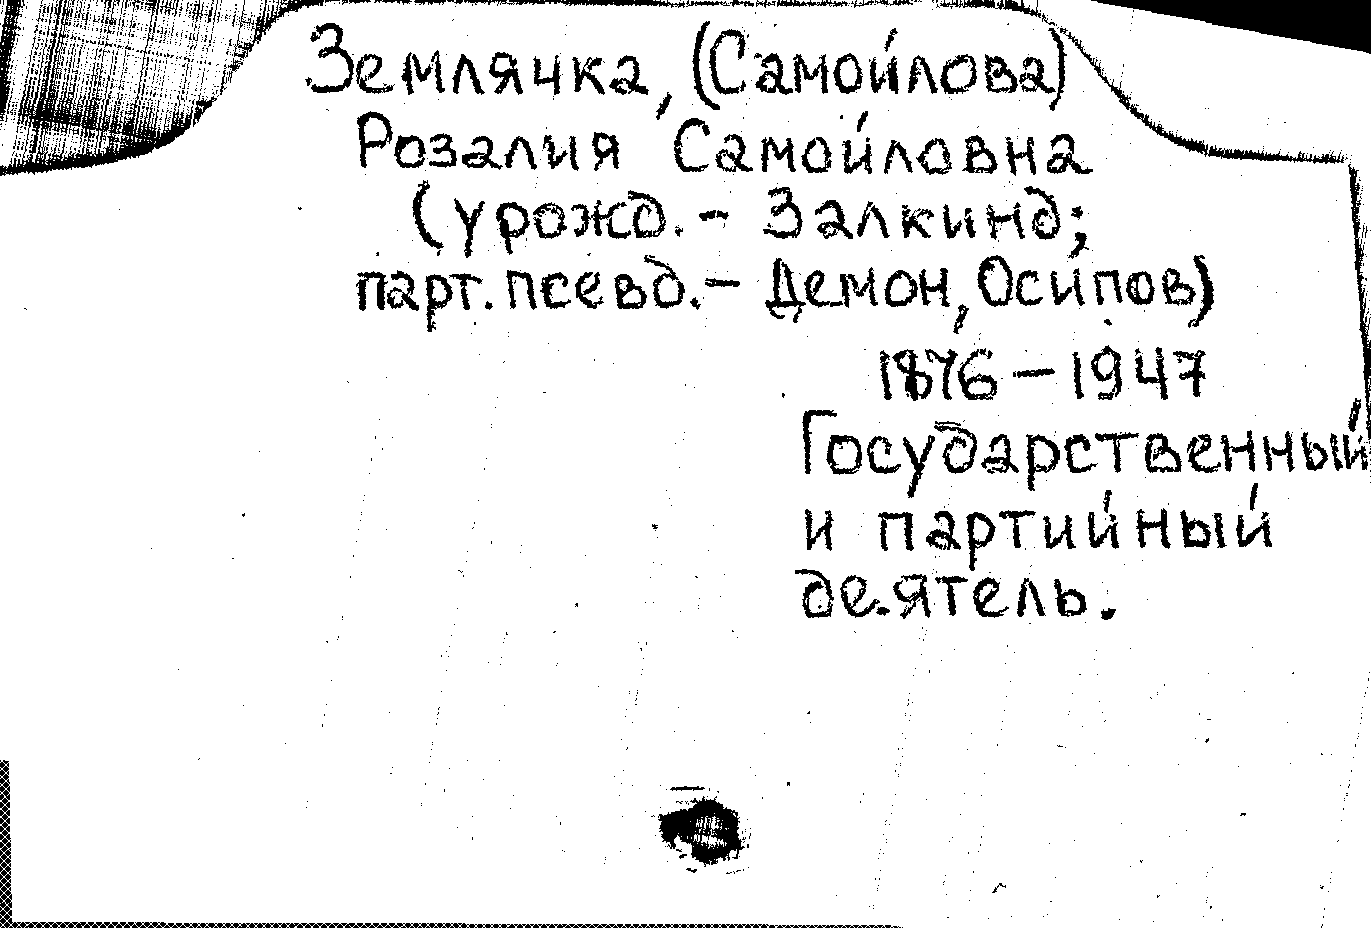 Землячка, (Самойлова)
Розалия Самойловна
(урожд. - Залкинд;
парт. псевд. - Демон, Осипов)
1876 - 1947
Государственный
и партийный
деятель.